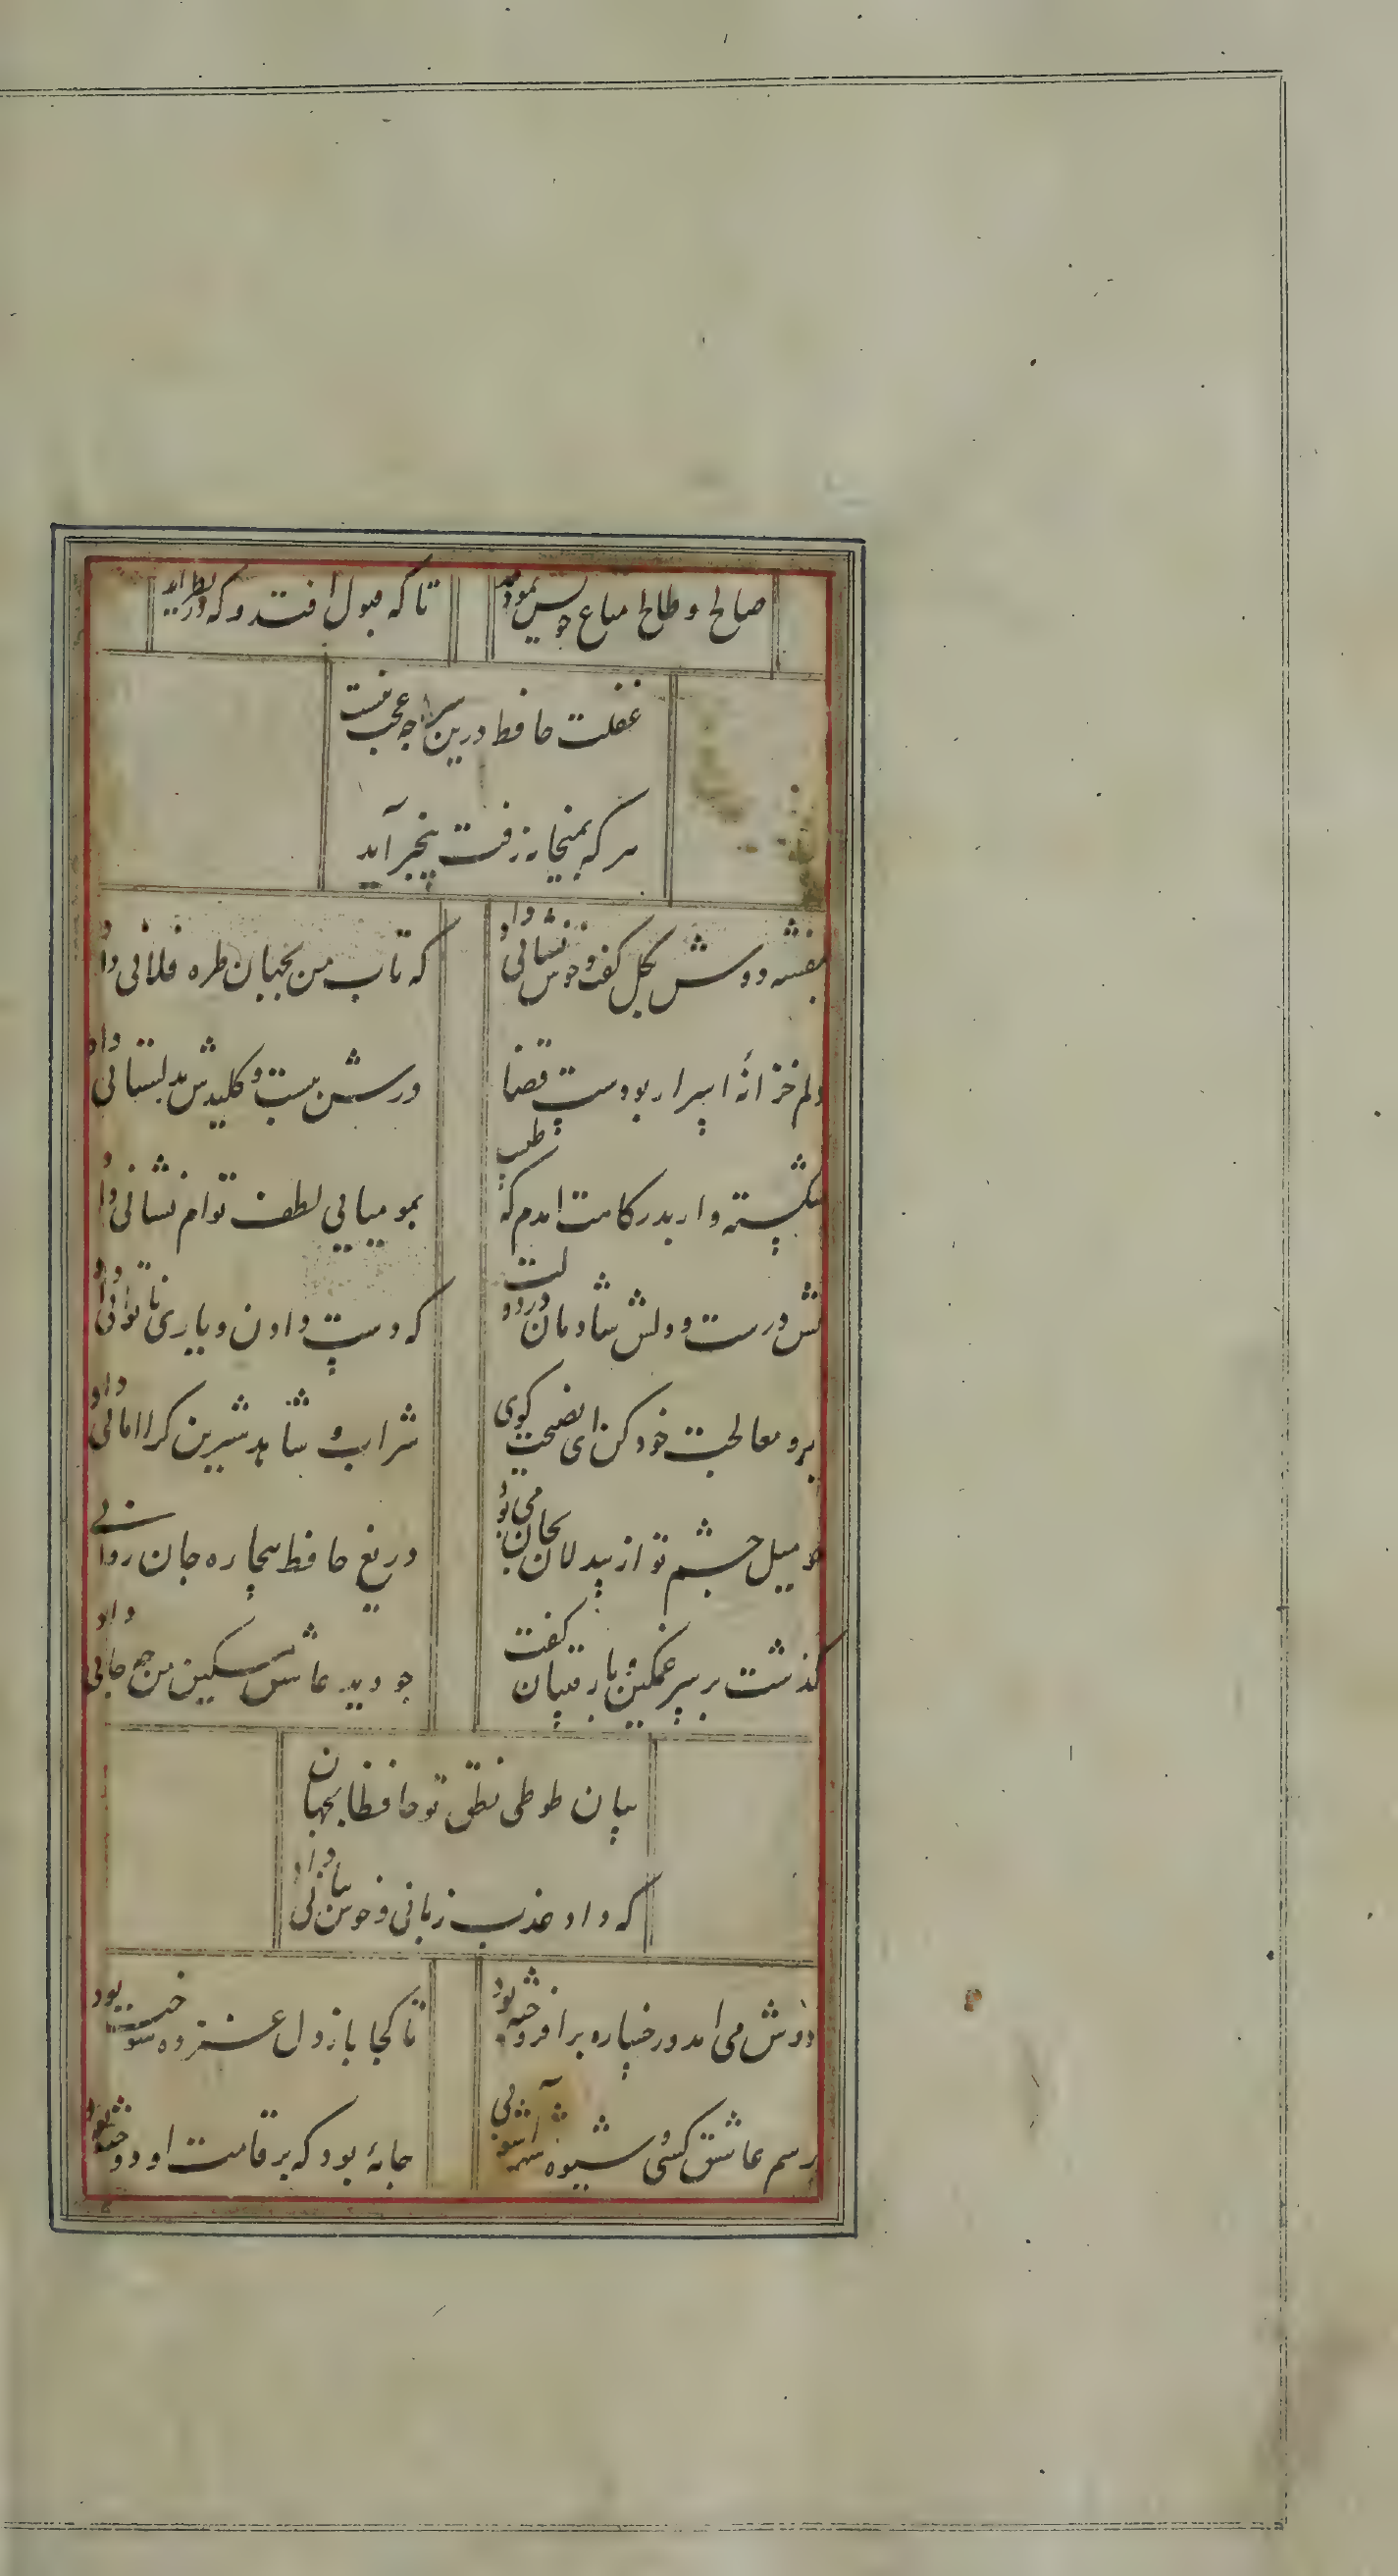 صالح و طالح متاع خویش نمودند
تا که قبول افتد و که در نظر آید
غفلت حافظ درین سراچه عجب نیست
هر که بمیخانه رفت بیخبر آید
بنفشه دوش بگل گفت و خوش نشانی داد
که تاب من بجهان طره فلانی داد
دلم خزانهٔ اسرار بود دست قضا
درش ببست و کلیدش بدلستانی داد
شکسته وار بدرکاهت امدم که طبیب
بمومیایی لطف توام نشانی داد
تنش درست و دلش شادمان در دولت
که دست دادن و یاری ناتوانی داد
برو معالجت خود کن ای نصیحت کوی
شراب و شاهد شیرین کرا امانی داد
چو میل چشم تو از بیدلان بجان می بود
دریغ حافظ بیچاره جان روانی
کذشت بر سر غمکین و با رقیبان کفت
چو دید عاشق مسکین من چه جانی داد
بیان طوطی نطق تو حافظا بجهان
که داد عذب زبانی و خوش بیانی داد
دوش می امد و رخساره برافروخته بود
تا کجا باز دل غمزده سوخته بود
رسم عاشق کشی و شیوه شهر آشوبی
جامهٔ بود که بر قامت او دوخته بود